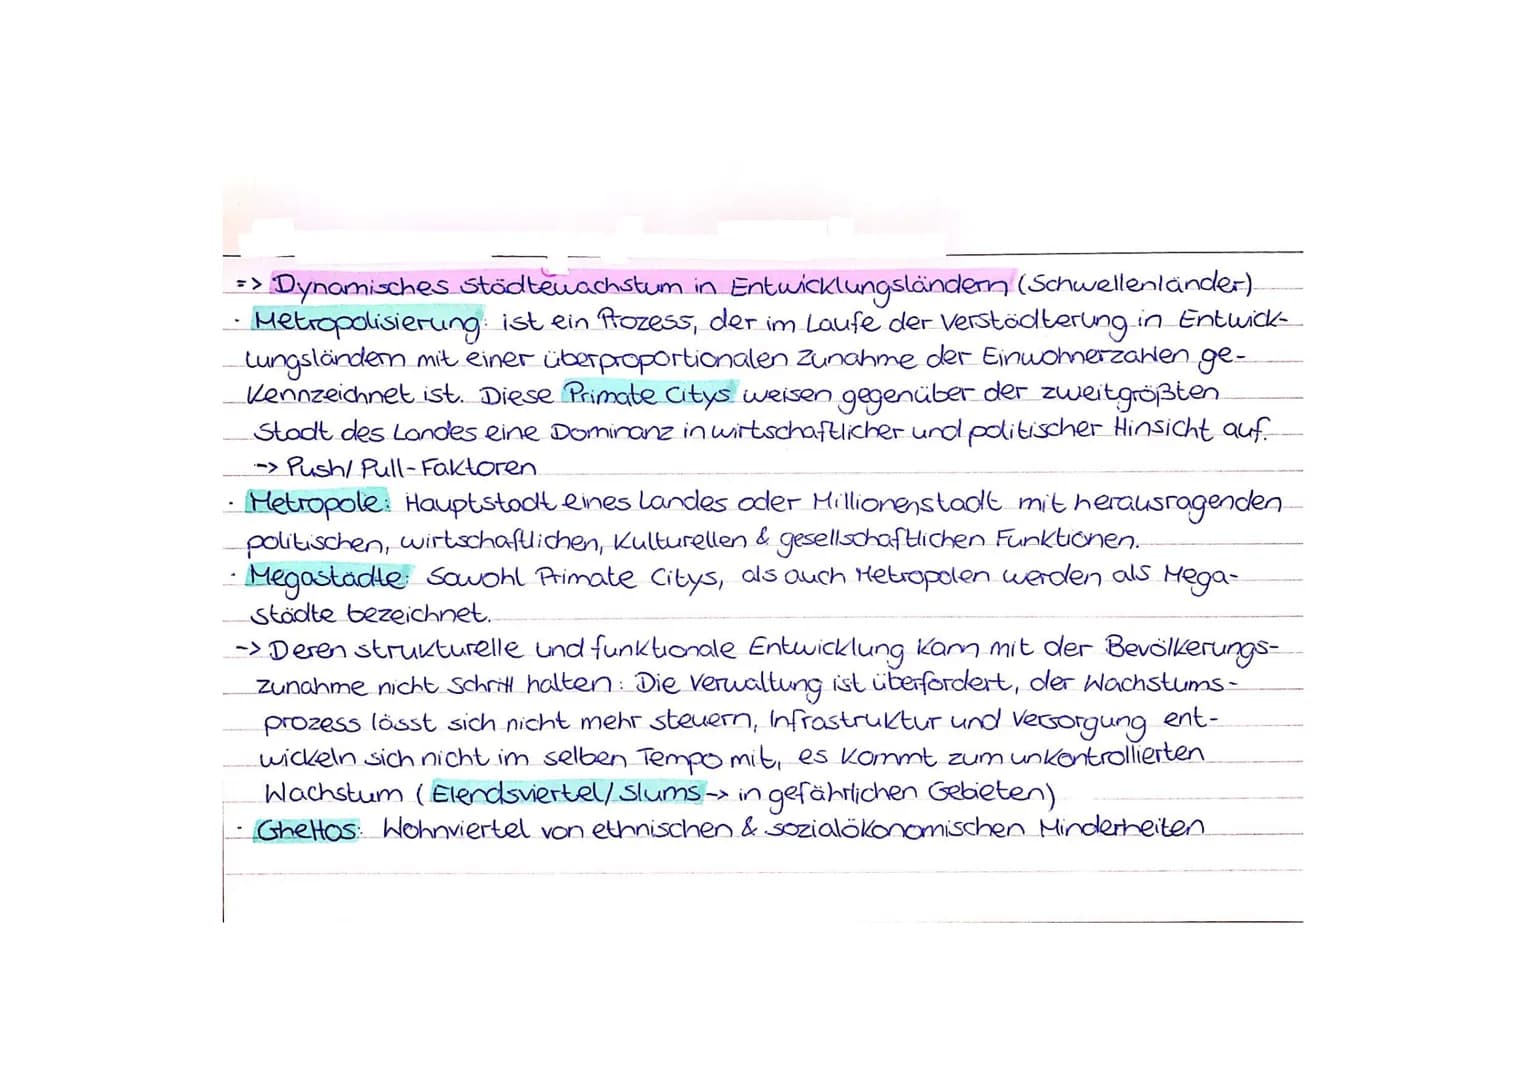 => Dynamisches Städtewachstum in Entwicklungsländern (Schwellenländer)
· Metropolisierung: ist ein Prozess, der im Laufe der Verstädterung in Entwick-
lungsländern mit einer überproportionalen Zunahme der Einwohnerzahlen ge-
kennzeichnet ist. Diese Primate Citys weisen gegenüber der zweitgrößten
Stadt des Landes eine Dominanz in wirtschaftlicher und politischer Hinsicht auf.
-> Push/ Pull-Faktoren
· Metropole: Hauptstadt eines Landes oder Millionenstadt mit herausragenden
politischen, wirtschaftlichen, kulturellen & gesellschaftlichen Funktionen.
· Megastädte: Sowohl Primate Citys, als auch Metropolen werden als Mega-
städte bezeichnet.
-> Deren strukturelle und funktionale Entwicklung kann mit der Bevölkerungs-
zunahme nicht Schritt halten: Die Verwaltung ist überfordert, der Wachstums-
prozess lässt sich nicht mehr steuern, Infrastruktur und Versorgung ent-
wickeln sich nicht im selben Tempo mit, es kommt zum unkontrollierten
Wachstum (Elendsviertel/Slums -> in gefährlichen Gebieten)
· Ghettos: Wohnviertel von ethnischen & sozialökonomischen Minderheiten